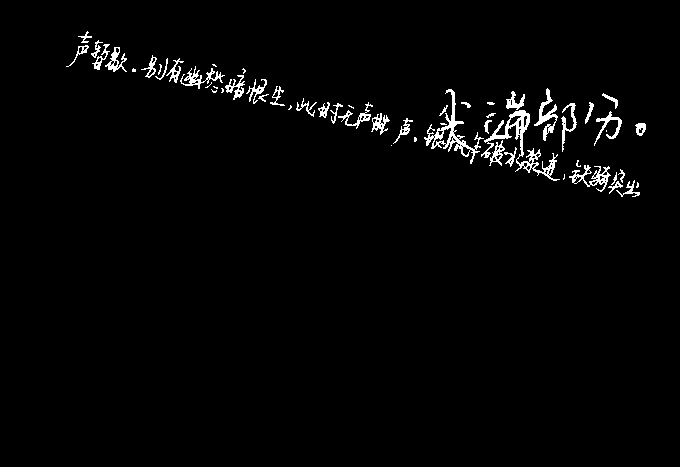 声暂歇。别有幽愁暗恨生,此时无声胜声。银瓶乍破水浆迸,铁骑突出
端部分。